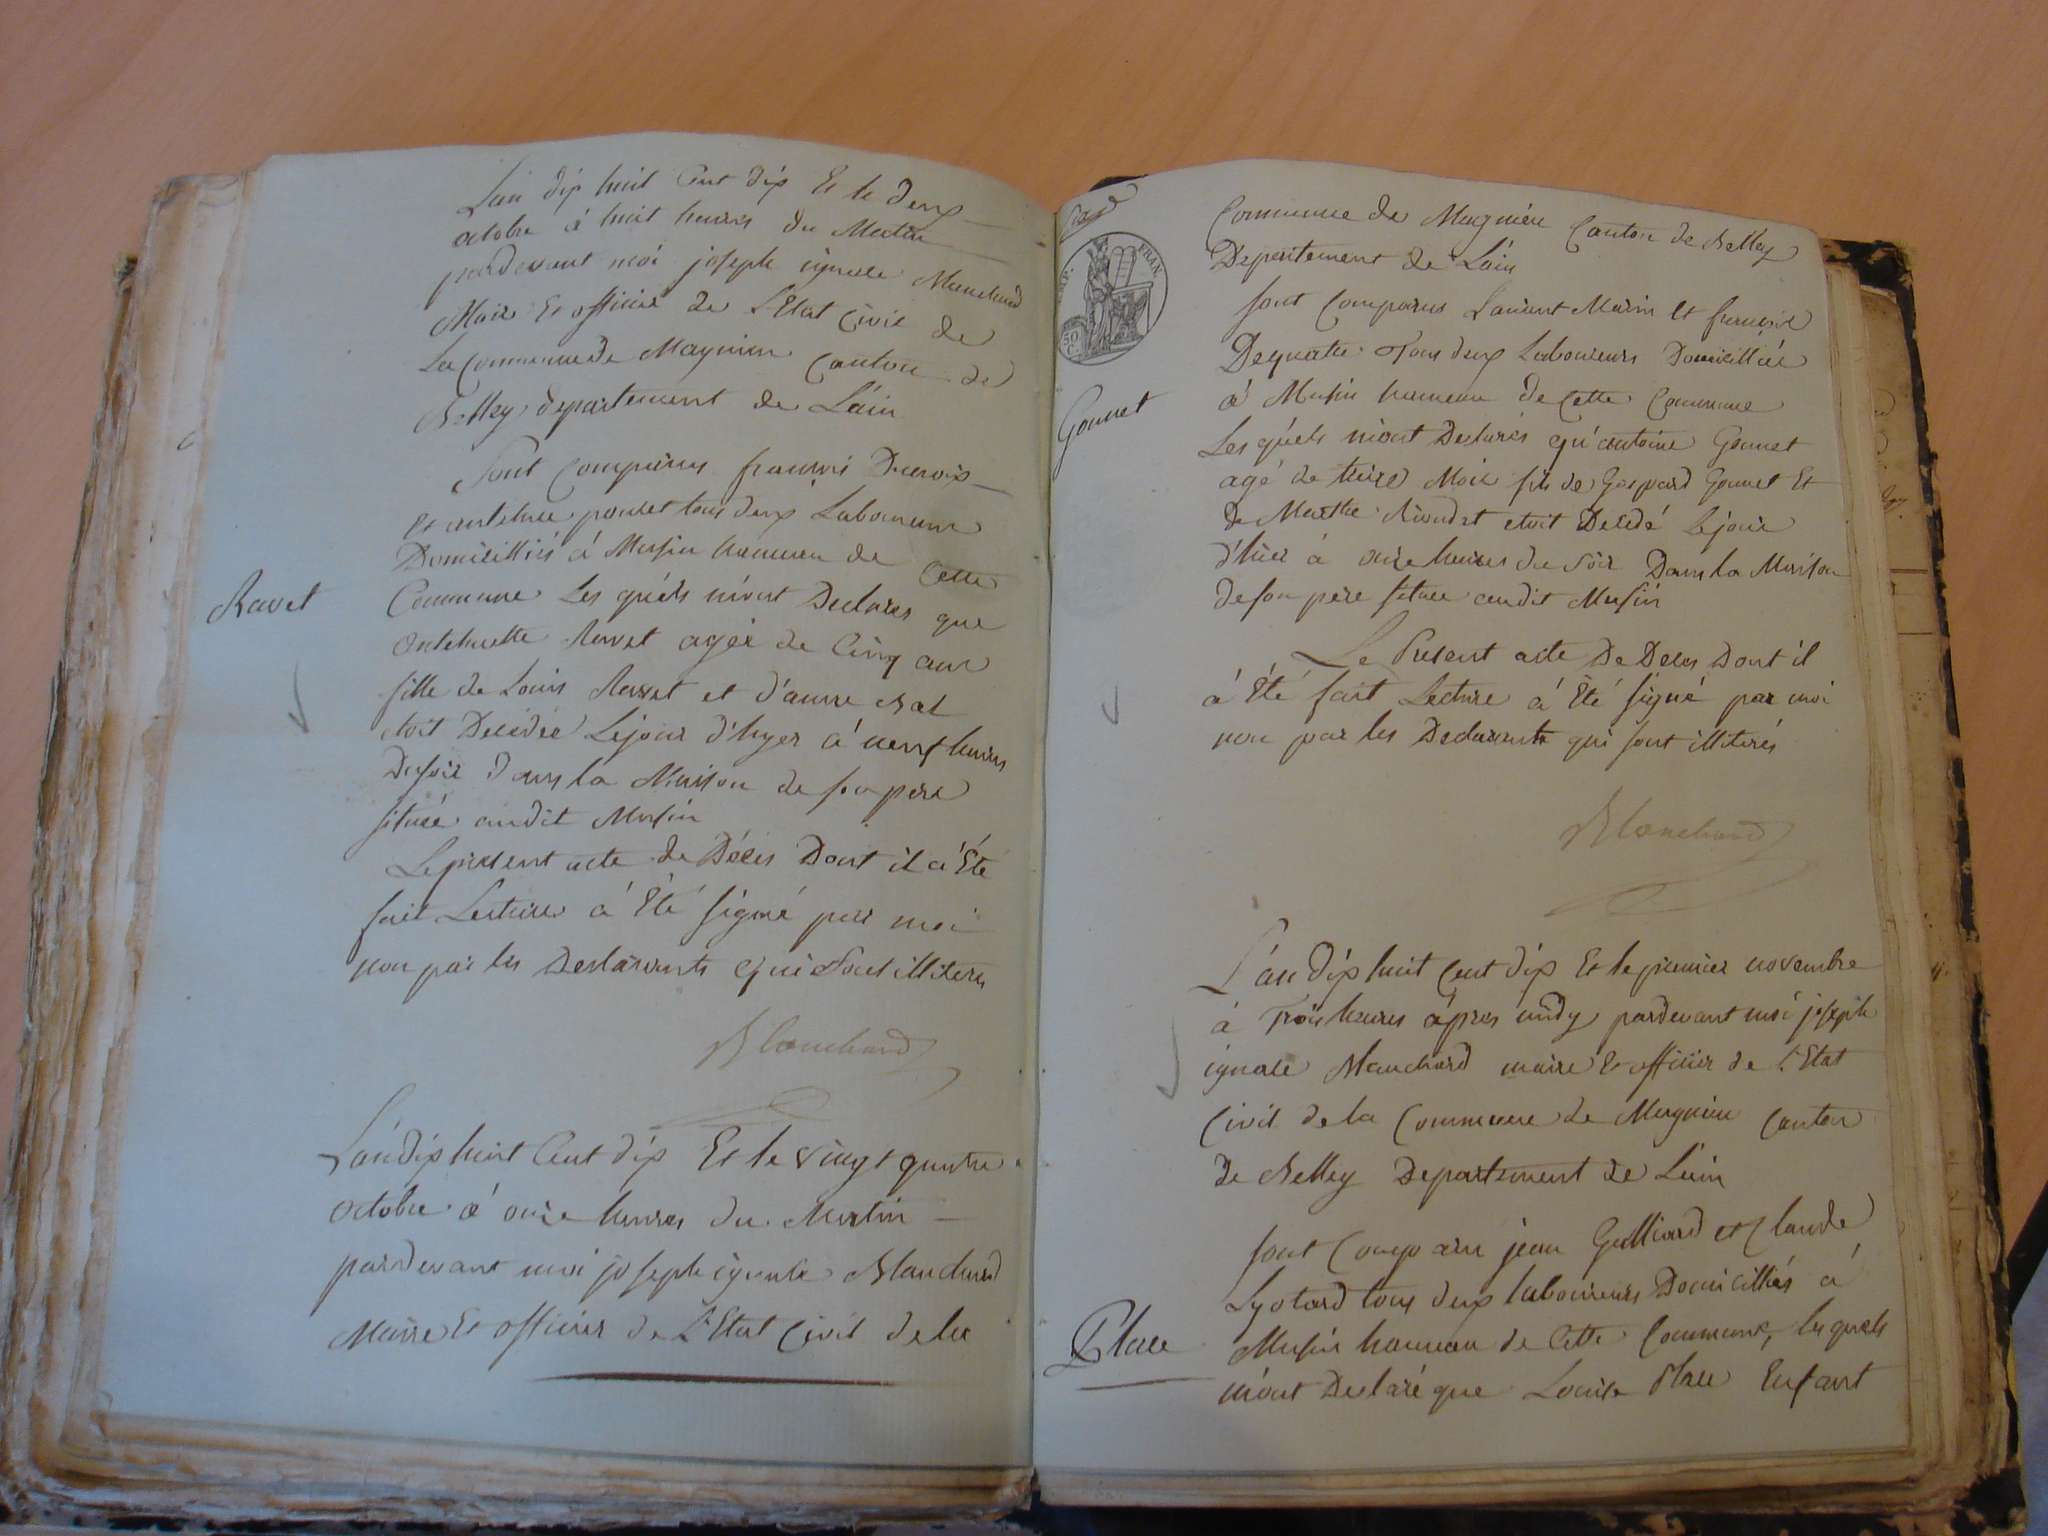 L'an dix huit Cent dix Et le deux
octobre à huit heures du Matin
pardevant moi joseph ignace Blanchard
Maire Et officier de L'Etat Civil de
La Commune de Magnieu Canton de
Belley departement de L'ain
Sont Comparus francois Ducroix
et anthelme poncet tous deux Laboureurs
Domicilliés à Musin hameau de Cette
Commune Les quéls m'ont Declarés que
Ravet
Anthelmette Ravet agée de Cinq ans
fille de Louis Ravet et d'anne Bal
etoit Decedée Le jour d'hyer à neuf heures
Du soir dans la Maison de son pere
située audit Musin
Le présent acte de Décès Dont il à Eté
fait Lecture à Eté signé par moi
non par les Declarants qui Sont illiterés
Blanchard
L'an dix huit Cent dix Et le vingt quatre
octobre à onze heures du Matin
pardevant moi joseph ignace Blanchard
Maire Et officier de L'Etat Civil de la
EMP. FRAN.
50 C.
Commune de Magnieu Canton de Belley
Departement de L'ain
Sont Comparus Laurent Marin Et francois
Dequatre Tous deux Laboureurs Domicilliés
à Musin hameau de Cette Commune
Gonnet
Les quéls m'ont Declarés qu'antoine Gonnet
agé de treize Mois fils de Gaspard Gonnet Et
de Marthe etoit Décédé Le jour
d'hier à onze heures du Soir Dans la Maison
de son pere située audit Musin
Le Présent acte De Deces Dont il
à Eté fait Lecture à Eté signé par moi
non par les Declarants qui sont illiterés
Blanchard
L'an dix huit Cent dix Et le premier novembre
à Trois heures après midy pardevant moi joseph
ignace Blanchard maire Et officier de L'Etat
Civil de la Commune de Magnieu Canton
de Belley Departement de L'ain
Sont Comparu jean Gulliard et Claude
Lyotard tous deux laboureurs Domicilliés à
Place
Musin hameau de Cette Commune, les quels
m'ont Declaré que Louise Place Enfant